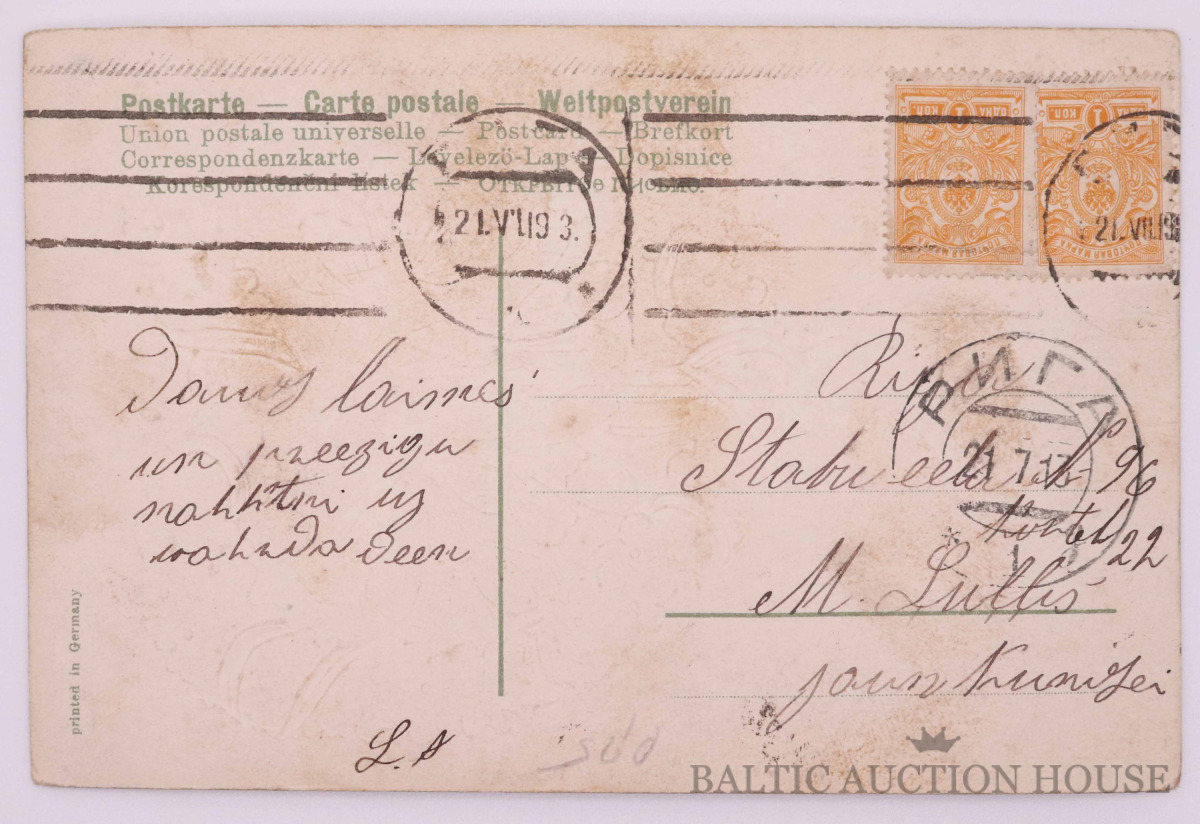 Postkarte — Carte postale — Weltpostverein
Union postale universelle — Postcard — Brefkort
Correspondenzkarte — Levelező-Lap — Dopisnice
Korespondenční lístek — Открытое письмо.
1 КОП
1 КОП
ПОЧТОВАЯ МАРКА
ПОЧТОВАЯ МАРКА
21.VII.19 3.
21.VII.19
РИГА
21.7.13
1
Daudz laimes
un preezigu
nahktni us
wahrda deen
L. A
Riga
Stabu eela № 96
22
M.
jaunkundsei
printed in Germany
BALTIC AUCTION HOUSE